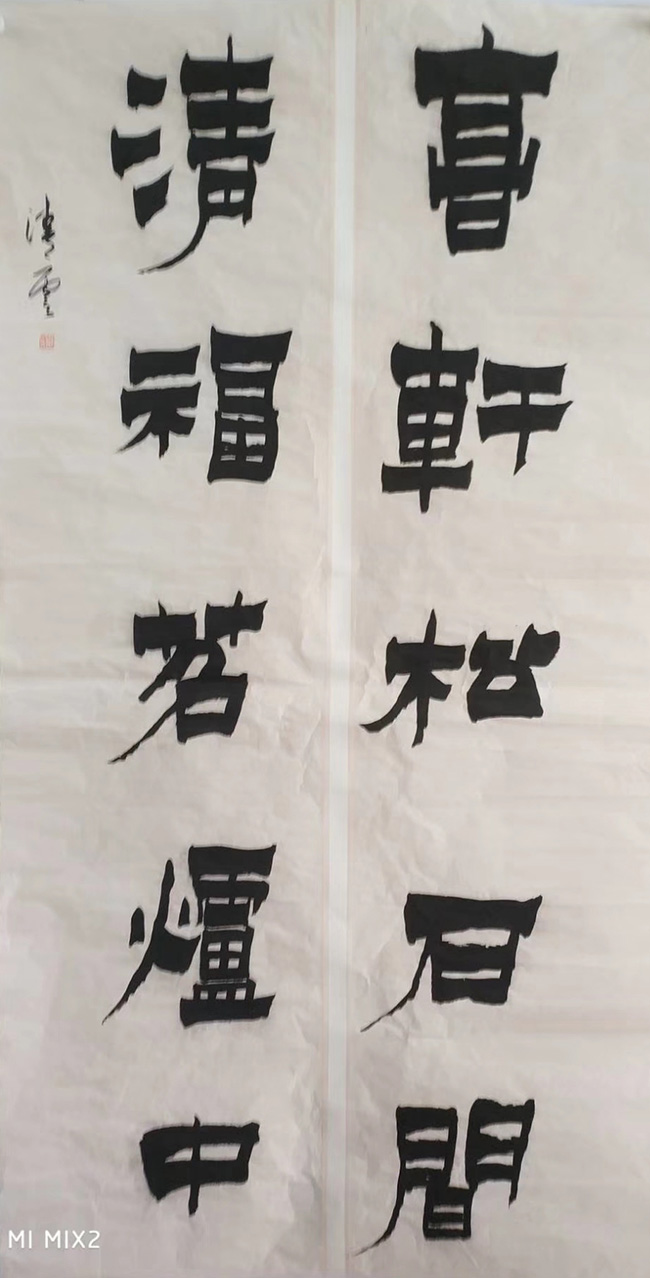 高軒松石間
清福茗爐中
MI MIX2